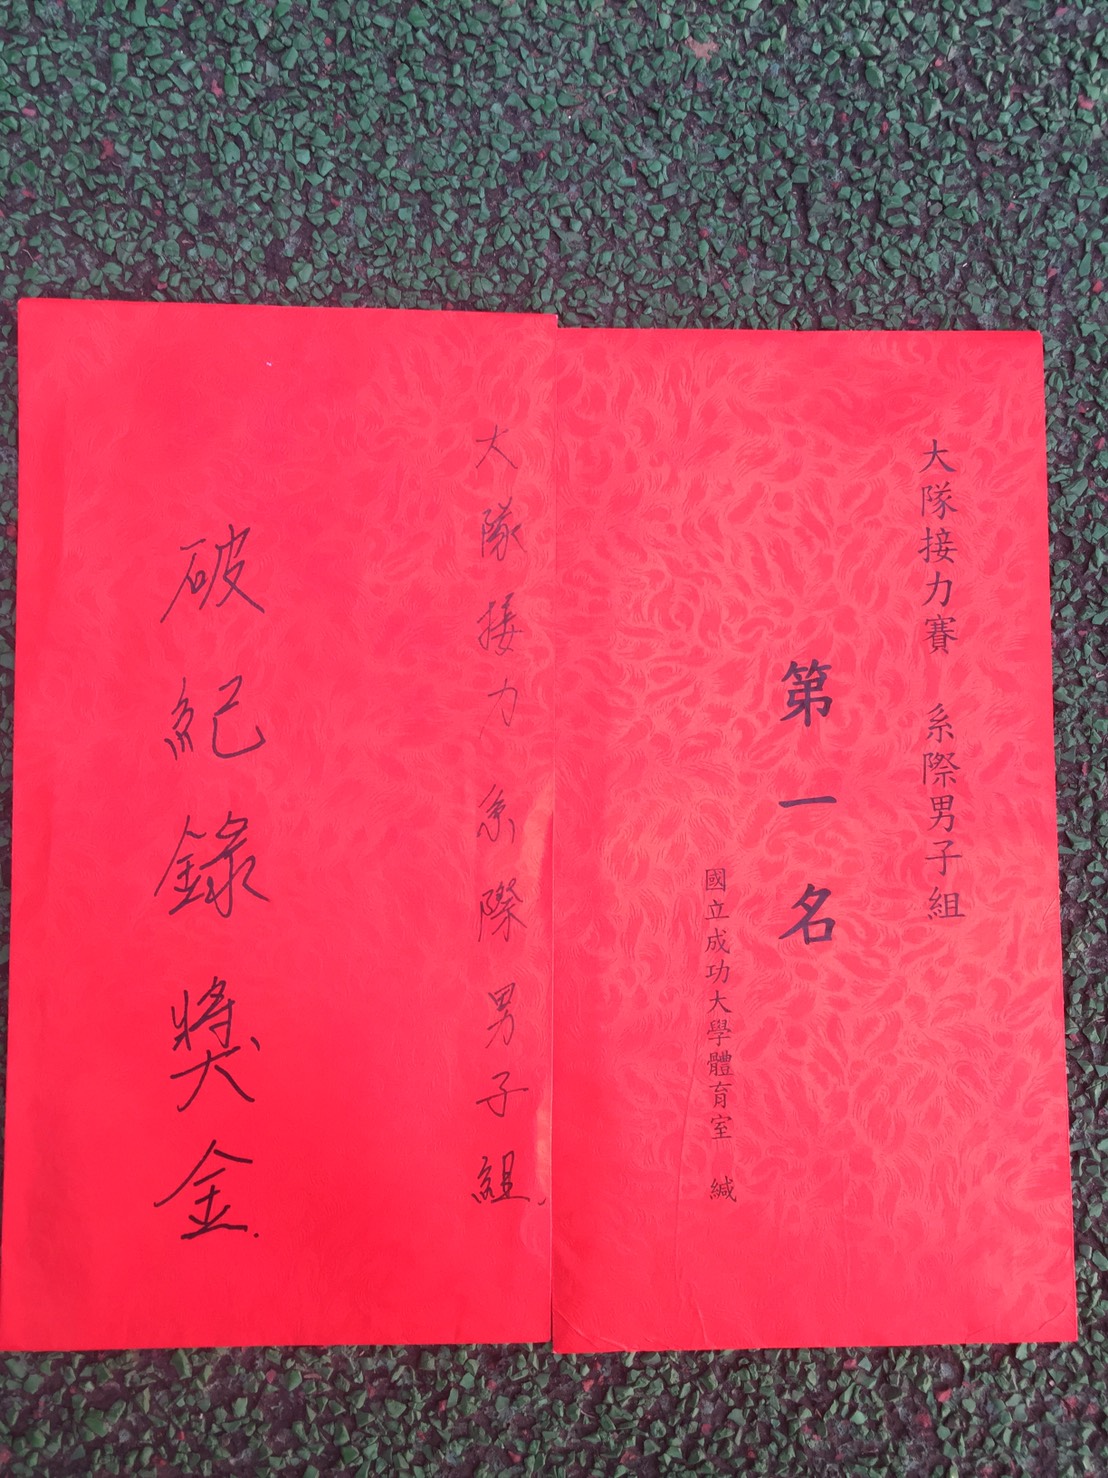 大隊接力賽 系際男子組
第一名
國立成功大學體育室 緘
大隊接力系際男子組
破紀錄獎金